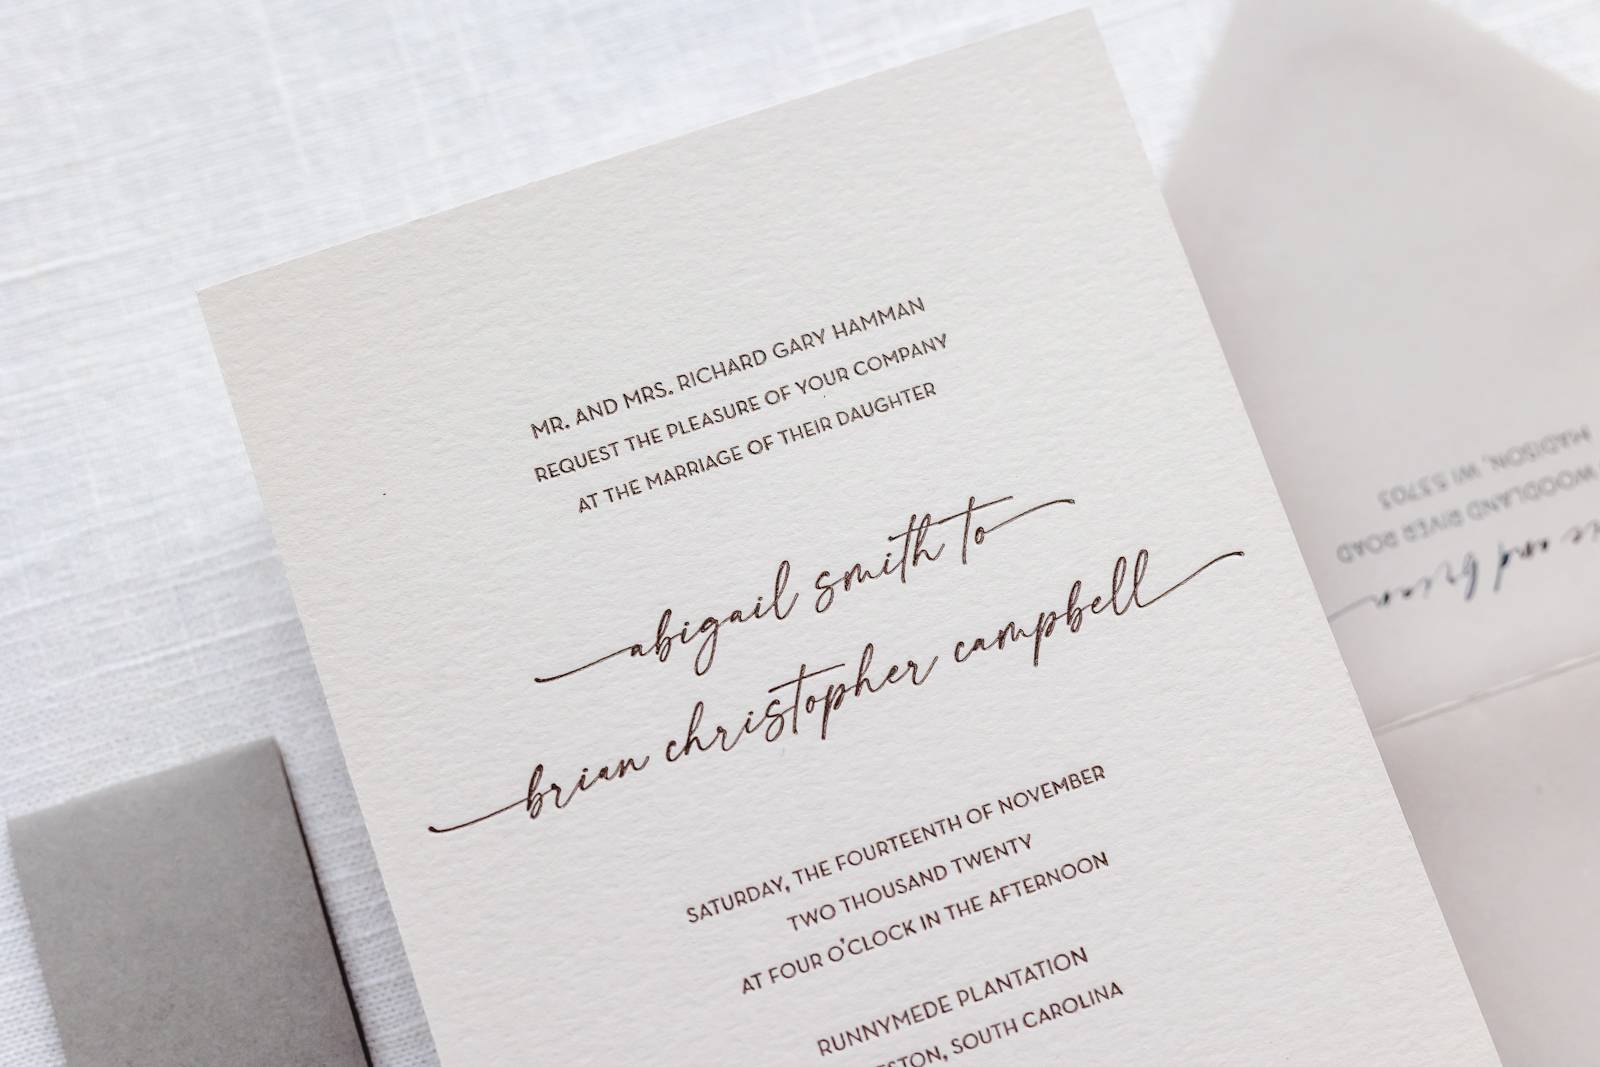 MR. AND MRS. RICHARD GARY HAMMAN
REQUEST THE PLEASURE OF YOUR COMPANY
AT THE MARRIAGE OF THEIR DAUGHTER
abigail smith to
brian christopher campbell
SATURDAY, THE FOURTEENTH OF NOVEMBER
TWO THOUSAND TWENTY
AT FOUR O'CLOCK IN THE AFTERNOON
RUNNYMEDE PLANTATION
SOUTH CAROLINA
and brian
WOODLAND RIVER ROAD
MADISON, WI 53703